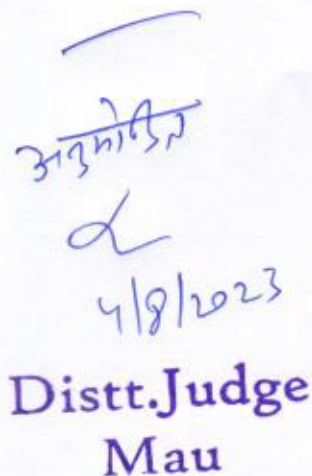 अनुमोदित
4/8/2023
Distt.Judge
Mau